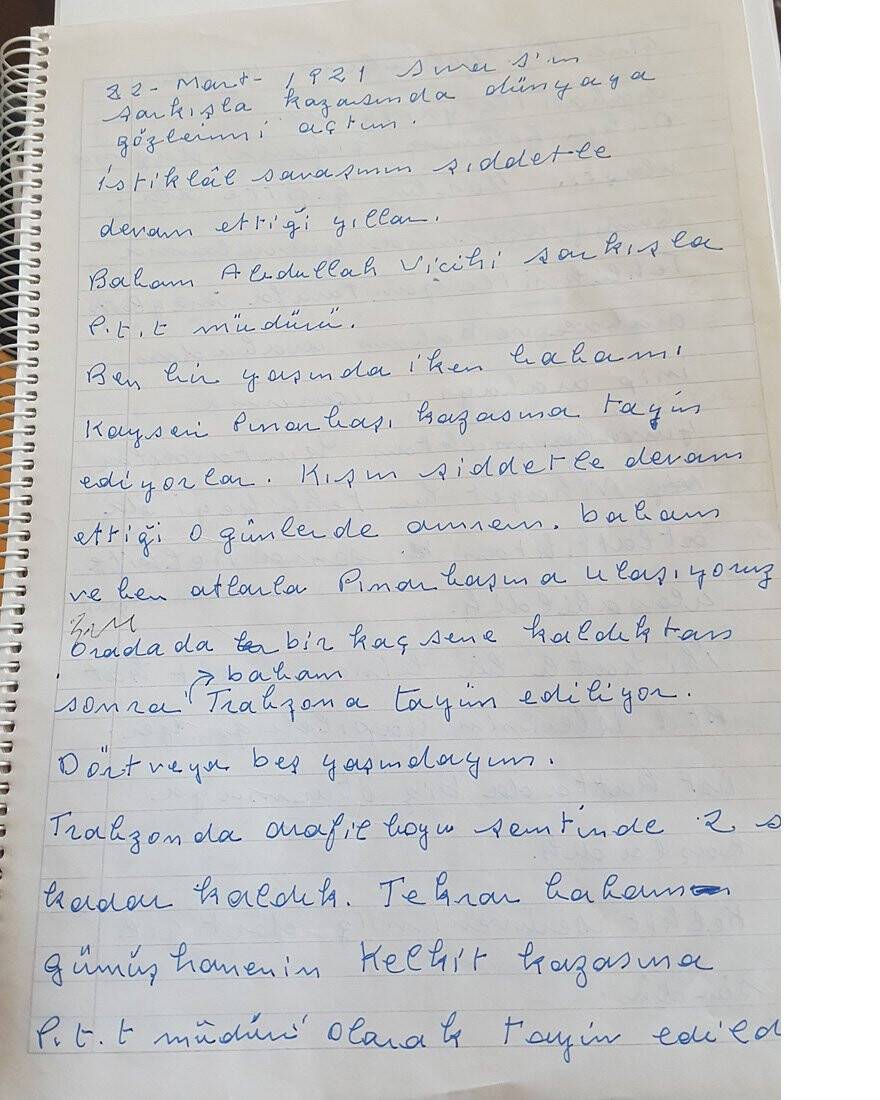 22- Mart- 1921 sıva s'ın
sarkışla kazasında dünyaya
gözlerimi açtım.
İstiklâl savaşının şiddetle
devam ettiği yıllar.
Babam Abdullah Vicihi sarkışla
P.t.t müdürü.
Ben bir yaşında iken babamı
Kayseri Pınarbaşı kazasına tayin
ediyorlar. Kışın siddetle devam
ettiği o günlerde annem. babam
ve ben atlarla Pınarbaşına ulaşıyoruz
Oradada bir kaç sene kaldıktan
babam
sonra Trabzona tayin ediliyor.
Dört veya beş yaşındayım.
Trabzonda arafilboyu semtinde 2 s
kadar kaldık. Tekrar babam
gümüşhanenin Kelkit kazasına
P.t.t müdürü olarak tayin edild